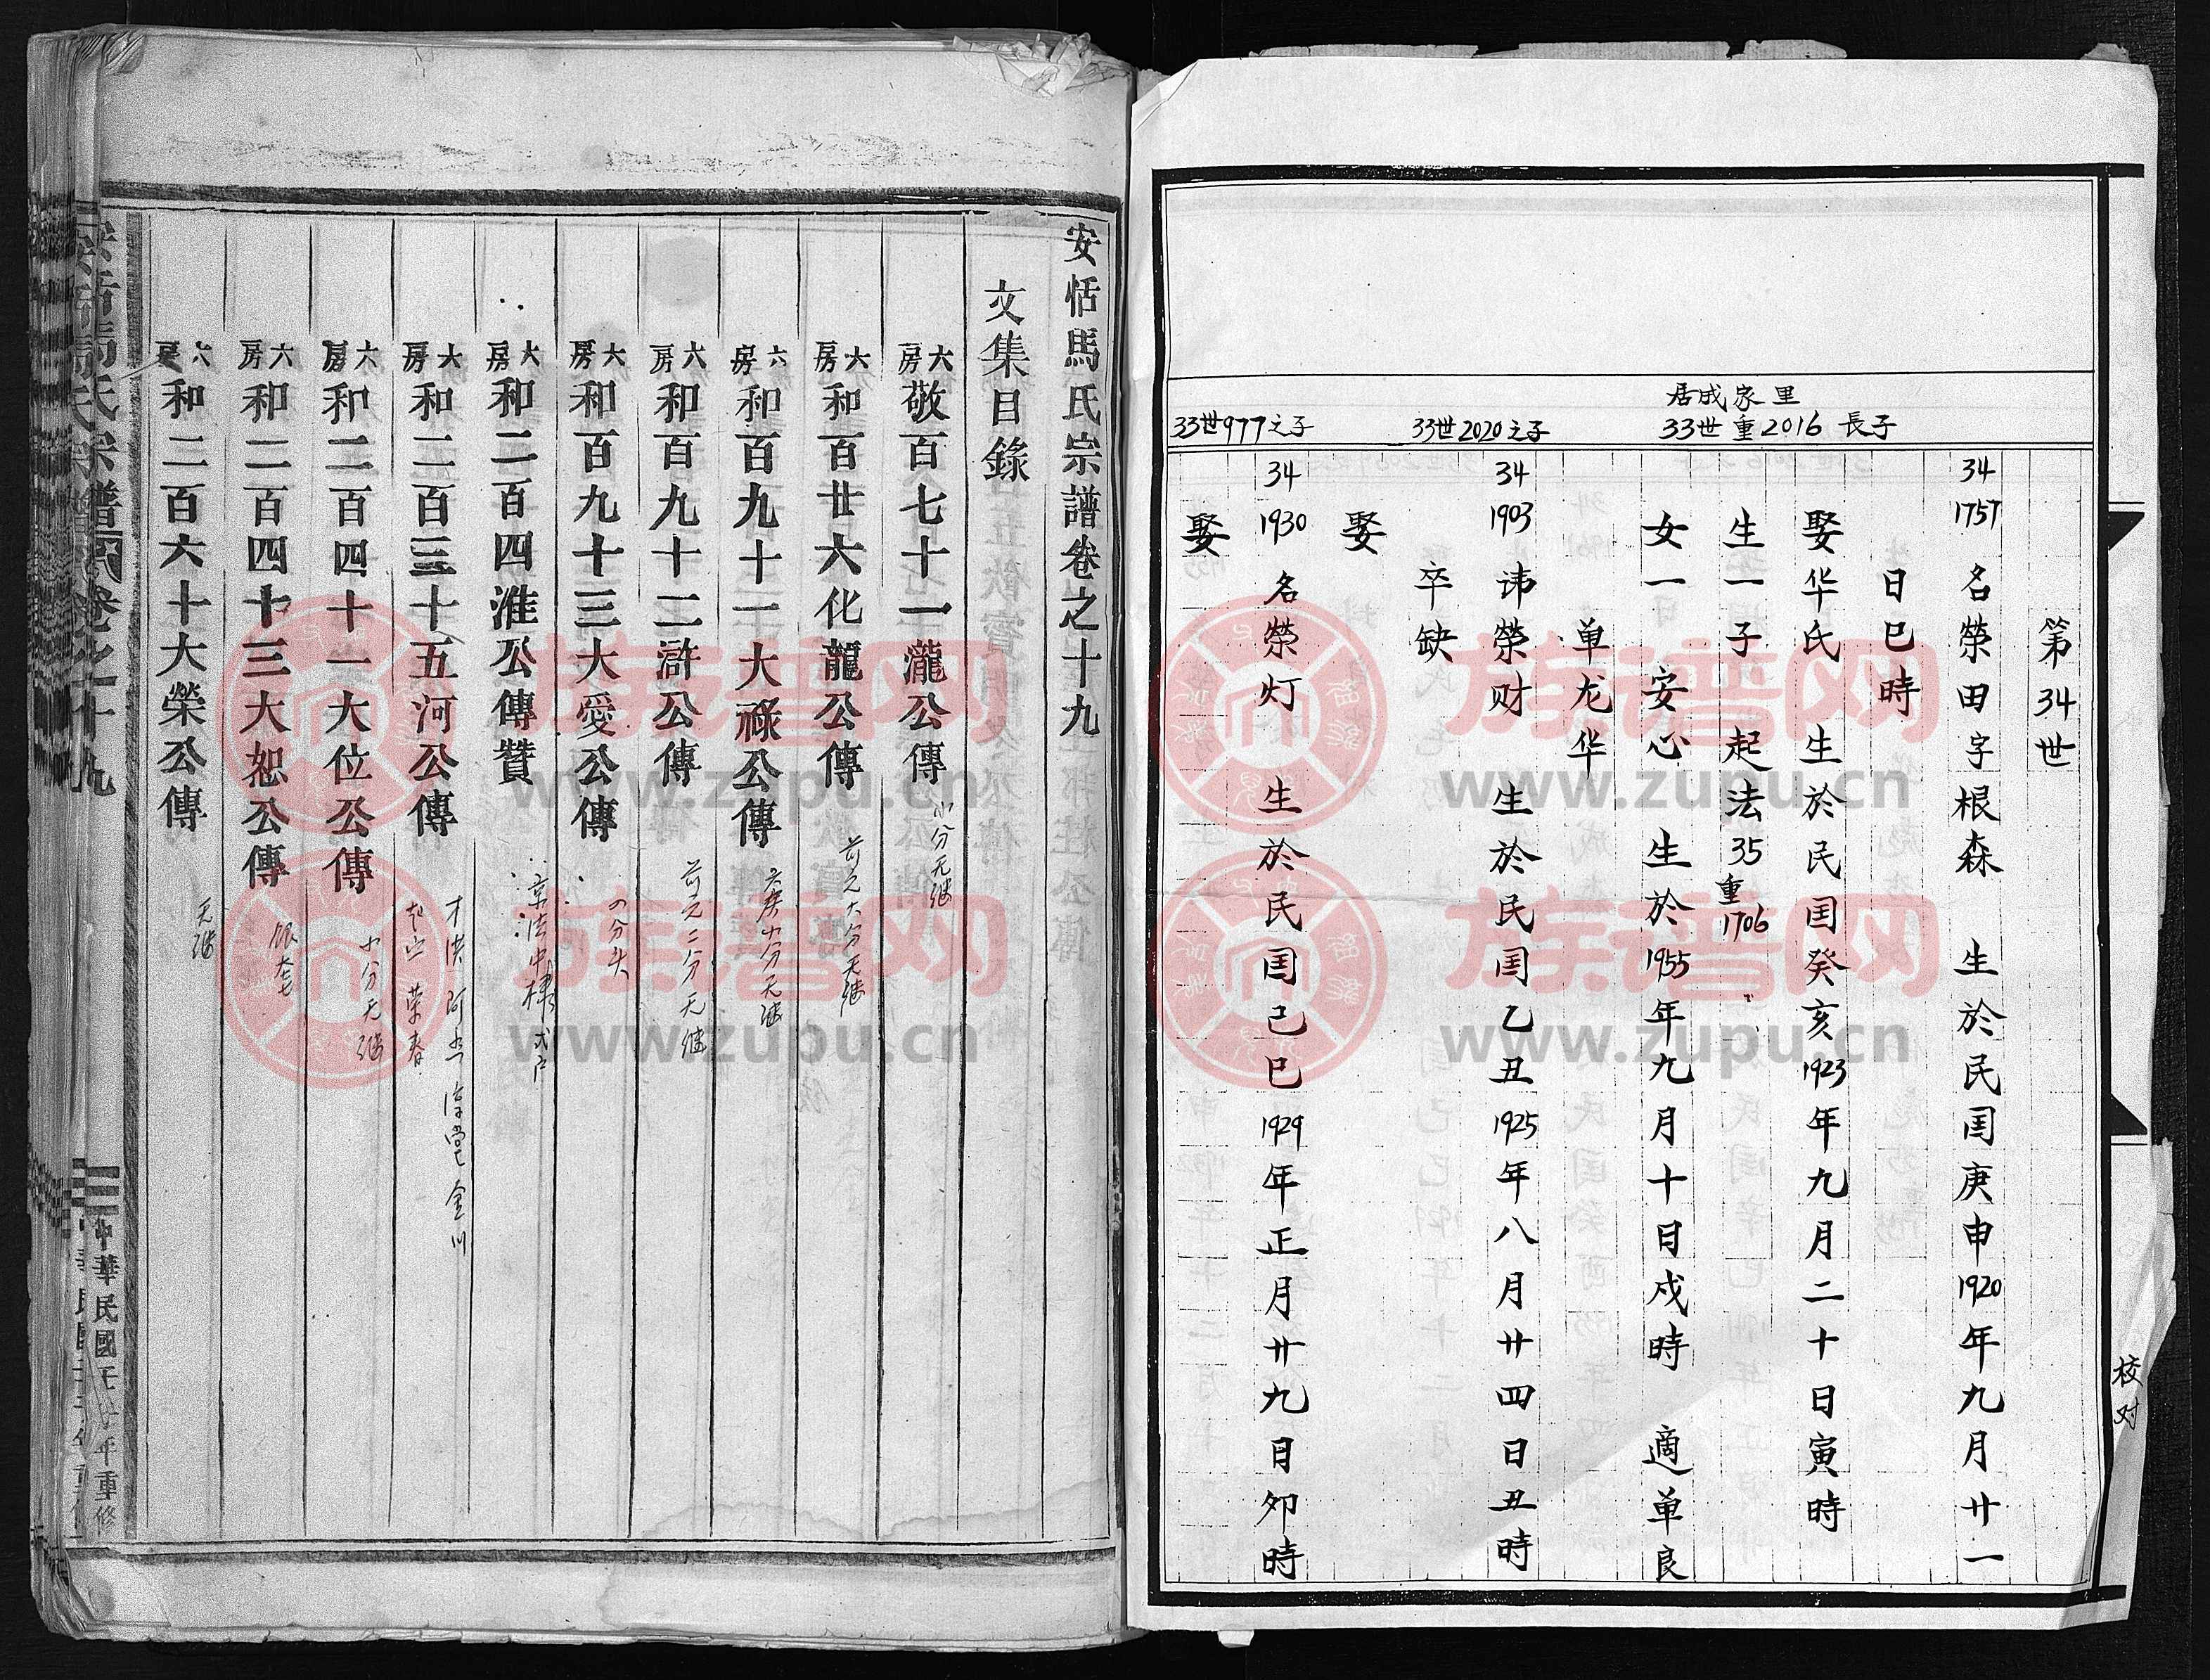 居成家里
33世重2016 長子
33世2020之子
33世977之子
第34世
34 1757 名荣田字根森 生於民国庚申1920年九月廿一
日巳時
娶华氏 生於民国癸亥1923年九月二十日寅時
生一子 起法35重1706
女一 安心 生於1955年九月十日戍時 適单良
单龙华
34 1903 讳荣财 生於民国乙丑1925年八月廿四日丑時
卒缺
娶
34 1930 名荣灯 生於民国己巳1929年正月廿九日卯時
娶
校对
安恬馬氏宗譜卷之十九
文集目錄
六房 敬百七十一瀧公傳
六房 和百廿六化龍公傳
六房 和百九十一大祿公傳
六房 和百九十二滸公傳
六房 和百九十三大愛公傳
六房 和二百四淮公傳贊
六房 和二百三十五河公傳
六房 和二百四十一大位公傳
六房 和二百四十三大恕公傳
六房 和二百六十大榮公傳
无继
安恬馬氏宗譜
卷之十九
中華民國
年重修
族谱网
www.zupu.cn
族谱网
www.zupu.cn
族谱网
www.zupu.cn
族谱网
www.zupu.cn